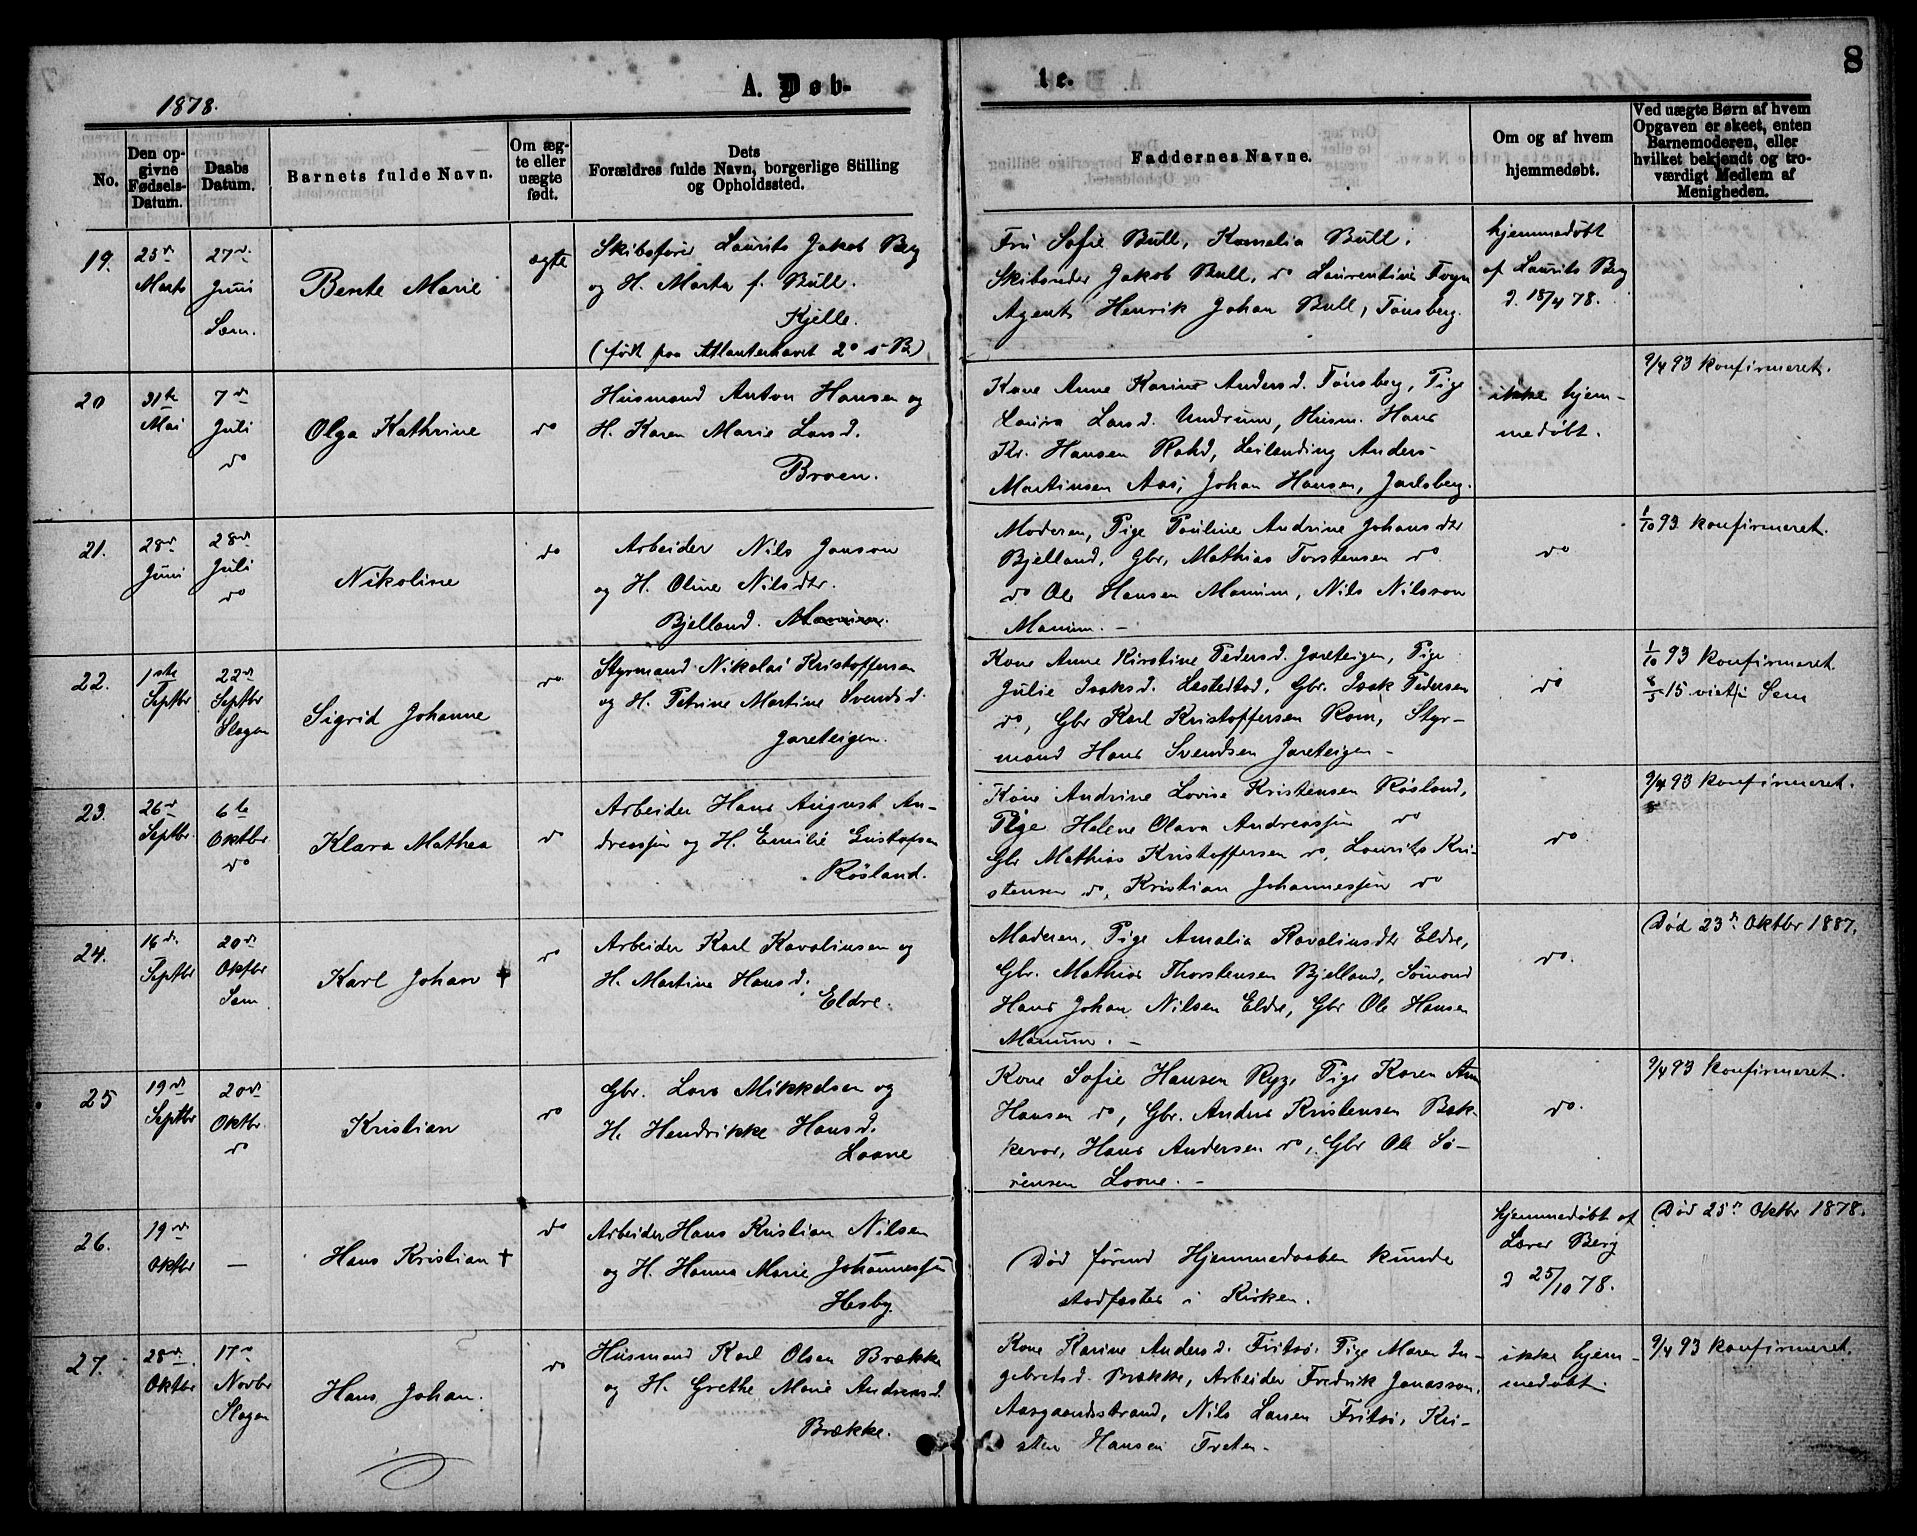 8
1878.
A. Døb-
te.
No.
Den op-
givne
Fødsels-
Datum.
Daabs
Datum.
Barnets fulde Navn.
Om æg-
te eller
uægte
født.
Dets
Forældres fulde Navn, borgerlige Stilling
og Opholdssted.
Faddernes Navne.
Om og af hvem
hjemmedøbt.
Ved uægte Børn af hvem
Opgaven er skeet, enten
Barnemoderen, eller
hvilket bekjendt og tro-
værdigt Medlem af
Menigheden.
19.
25de
Marts
27de
Juni
Sem.
Bente Marie
ægte
Skibsfører Laurits Jakob Berg
og H. Marta f. Bull.
Kjelle.
(født paa Atlanterhavet 2° s B)
Fru Sofie Bull, Kornelia Bull,
Skibsreder Jakob Bull, do Laurentius Foyn
Agent Henrik Johan Bull, Tønsberg.
hjemmedøbt
af Laurits Berg
d. 18/4 78.
20
31te
Mai
7de
Juli
do
Olga Kathrine
do
Husmand Anton Hansen og
H. Karen Marie Larsd.
Broen.
Kone Anne Karine Andersd. Tønsberg, Pige
Laura Larsd. Undrum, Husm. Hans
Kr. Hansen Rakd, Leilending Anders
Martinsen Aas, Johan Hansen, Jarlsberg.
ikke hjem-
medøbt.
9/4 93 konfirmeret.
21.
28de
Juni
28de
Juli
do
Nikoline
do
Arbeider Nils Jonson
og H. Oline Nilsdtr.
Bjelland. Manum.
Moderen, Pige Pauline Andrine Johansdtr
Bjelland, Gbr. Mathias Torstensen do
do Ole Hansen Manum, Nils Nilsson
Manum. -
do
1/10 93 konfirmeret.
22.
1ste
Septbr
22de
Septbr
Slagen
Sigrid Johanne
do
Styrmand Nikolai Kristoffersen
og H. Petrine Martine Svendsd.
Jareteigen.
Kone Anne Kirstine Pedersd. Jareteigen, Pige
Julie Isaksd. Løstedtød, Gbr. Isak Pedersen
do, Gbr Karl Kristoffersen Rom, Styr-
mand Hans Svendsen Jareteigen -
do
1/10 93 konfirmeret
8/5 15 viet i Sem
23.
26de
Septbr.
6te
Oktbr
do
Klara Mathea
do
Arbeider Hans August An-
dreassen og H. Emilie Gustafsen
Røsland.
Kone Andrine Lovise Kristensen Røsland,
Pige Helene Olava Andreassen do
Gbr Mathias Kristoffersen do, Laurits Kri-
stensen do, Kristian Johannessen do
do
9/4 93 konfirmeret.
24.
16de
Septbr
20de
Oktbr
Sem
Karl Johan †
do
Arbeider Karl Kavalinsen og
H. Martine Hansd.
Eldre.
Moderen, Pige Amalia Kavalinsdtr Eldre,
Gbr. Mathias Thorstensen Bjelland, Sømand
Hans Johan Nilsen Eldre, Gbr Ole Hansen
Manum. -
do.
Død 23de Oktbr 1887.
25
19de
Septbr
20de
Oktbr.
do
Kristian
do
Gbr. Lars Mikkelsen og
H. Hendrikke Hansd.
Laane
Kone Sofie Hansen Ryg, Pige Karen Ann
Hansen do, Gbr. Anders Kristensen Bak-
kevar, Hans Andersen do, Gbr Ole Sø-
rensen Loone. -
do.
9/4 93 konfirmeret.
26.
19de
Oktbr
—
Hans Kristian †
do
Arbeider Hans Kristian Nilsen
og H. Hanna Marie Johannessen
Hesby.
Død førend Hjemmedaaben kunde
stadfæstes i Kirken.
hjemmedøbt af
Lærer Berg
d 25/10 78.
Død 25de Oktbr 1878.
27.
28de
Oktbr
17de
Novbr
Slagen
Hans Johan.
do
Husmand Karl Olsen Brække
og H. Grethe Marie Andreasd.
Brække.
Kone Karine Andersd. Fritsø, Pige Maren In-
gebretsd. Brække, Arbeider Fredrik Jonasson,
Aasgaardsstrand, Nils Larsen Fritsø, Kri-
sten Hansen Treten -
ikke hjem-
medøbt.
9/4 93 konfirmeret.